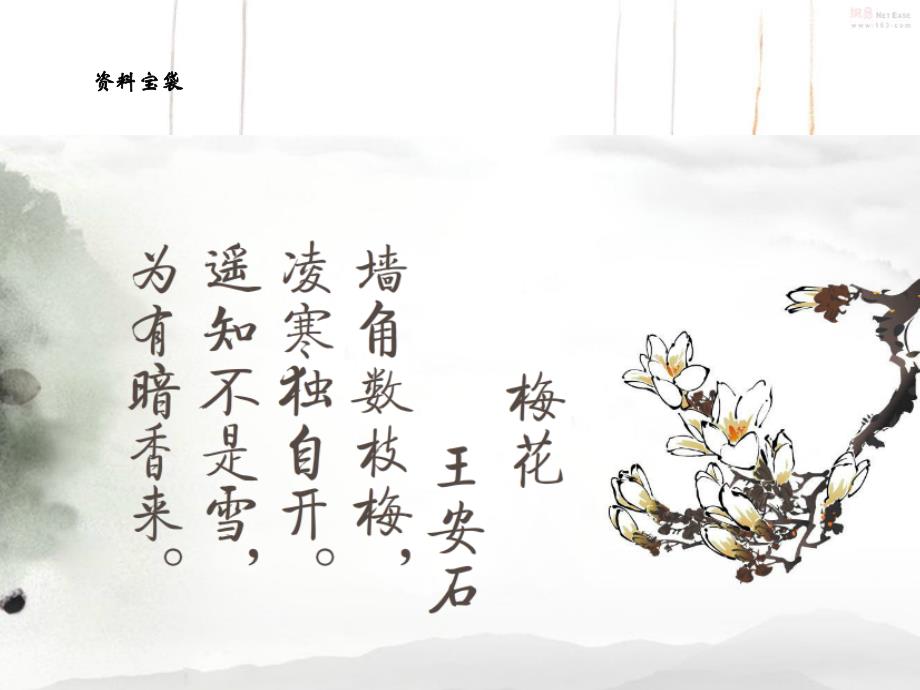 网易 NETEASE
www.163.com
资料宝袋
梅花
王安石
墙角数枝梅，
凌寒独自开。
遥知不是雪，
为有暗香来。